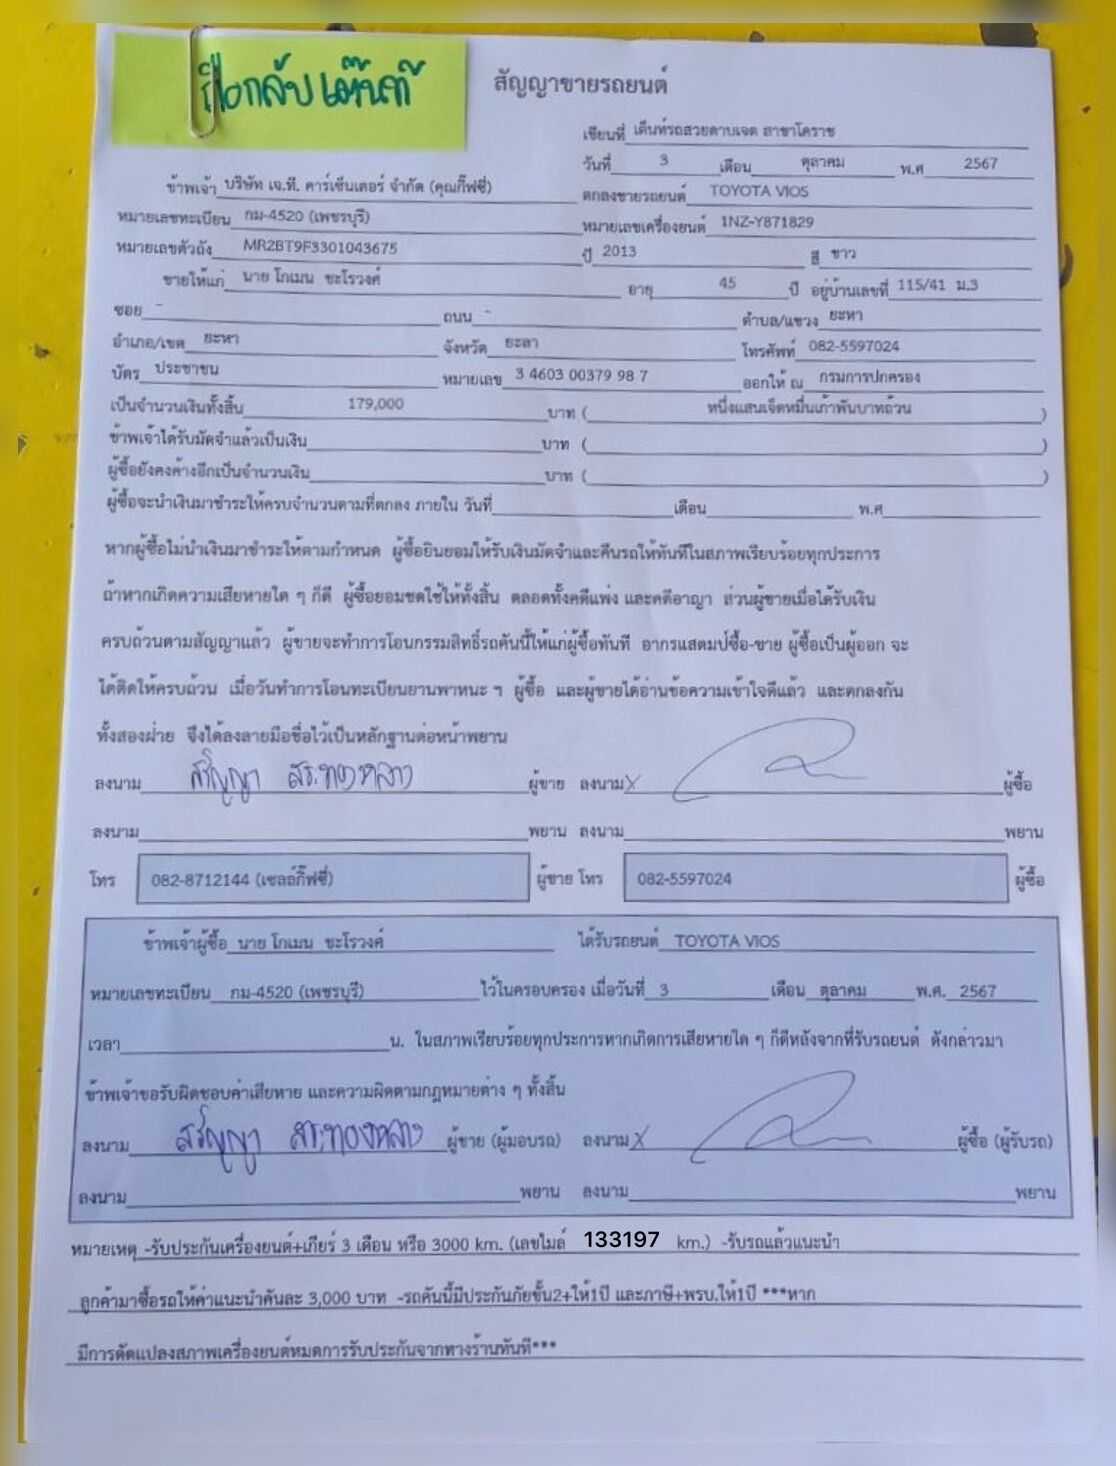 ถือกลับเต็นท์
สัญญาขายรถยนต์
เขียนที่ เต็นท์รถสวยดาบเจต สาขาโคราช
วันที่ 3 เดือน ตุลาคม พ.ศ 2567
ข้าพเจ้า บริษัท เจ.ที. คาร์เซ็นเตอร์ จำกัด (คุณกิ๊ฟซี่) ตกลงขายรถยนต์ TOYOTA VIOS
หมายเลขทะเบียน กม-4520 (เพชรบุรี) หมายเลขเครื่องยนต์ 1NZ-Y871829
หมายเลขตัวถัง MR2BT9F3301043675 ปี 2013 สี ขาว
ขายให้แก่ นาย โกเมน ชะโรวงศ์ อายุ 45 ปี อยู่บ้านเลขที่ 115/41 ม.3
ซอย - ถนน - ตำบล/แขวง ยะหา
อำเภอ/เขต ยะหา จังหวัด ยะลา โทรศัพท์ 082-5597024
บัตร ประชาชน หมายเลข 3 4603 00379 98 7 ออกให้ ณ กรมการปกครอง
เป็นจำนวนเงินทั้งสิ้น 179,000 บาท ( หนึ่งแสนเจ็ดหมื่นเก้าพันบาทถ้วน )
ข้าพเจ้าได้รับมัดจำแล้วเป็นเงิน บาท ( )
ผู้ซื้อยังคงค้างอีกเป็นจำนวนเงิน บาท ( )
ผู้ซื้อจะนำเงินมาชำระให้ครบจำนวนตามที่ตกลง ภายใน วันที่ เดือน พ.ศ
หากผู้ซื้อไม่นำเงินมาชำระให้ตามกำหนด ผู้ซื้อยินยอมให้รับเงินมัดจำและคืนรถให้ทันทีในสภาพเรียบร้อยทุกประการ
ถ้าหากเกิดความเสียหายใด ๆ ก็ดี ผู้ซื้อยอมชดใช้ให้ทั้งสิ้น ตลอดทั้งคดีแพ่ง และคดีอาญา ส่วนผู้ขายเมื่อได้รับเงิน
ครบถ้วนตามสัญญาแล้ว ผู้ขายจะทำการโอนกรรมสิทธิ์รถคันนี้ให้แก่ผู้ซื้อทันที อากรแสตมป์ซื้อ-ขาย ผู้ซื้อเป็นผู้ออก จะ
ได้ติดให้ครบถ้วน เมื่อวันทำการโอนทะเบียนยานพาหนะ ฯ ผู้ซื้อ และผู้ขายได้อ่านข้อความเข้าใจดีแล้ว และตกลงกัน
ทั้งสองฝ่าย จึงได้ลงลายมือชื่อไว้เป็นหลักฐานต่อหน้าพยาน
ลงนาม สรัญญา สระทองหลาง ผู้ขาย ลงนาม X ผู้ซื้อ
ลงนาม พยาน ลงนาม พยาน
โทร 082-8712144 (เซลล์กิ๊ฟซี่) ผู้ขาย โทร 082-5597024 ผู้ซื้อ
ข้าพเจ้าผู้ซื้อ นาย โกเมน ชะโรวงศ์ ได้รับรถยนต์ TOYOTA VIOS
หมายเลขทะเบียน กม-4520 (เพชรบุรี) ไว้ในครอบครอง เมื่อวันที่ 3 เดือน ตุลาคม พ.ศ. 2567
เวลา น. ในสภาพเรียบร้อยทุกประการหากเกิดการเสียหายใด ๆ ก็ดีหลังจากที่รับรถยนต์ ดังกล่าวมา
ข้าพเจ้าขอรับผิดชอบค่าเสียหาย และความผิดตามกฎหมายต่าง ๆ ทั้งสิ้น
ลงนาม สรัญญา สระทองหลาง ผู้ขาย (ผู้มอบรถ) ลงนาม X ผู้ซื้อ (ผู้รับรถ)
ลงนาม พยาน ลงนาม พยาน
หมายเหตุ -รับประกันเครื่องยนต์+เกียร์ 3 เดือน หรือ 3000 km. (เลขไมล์ 133197 km.) -รับรถแล้วแนะนำ
ลูกค้ามาซื้อรถให้ค่าแนะนำคันละ 3,000 บาท -รถคันนี้มีประกันภัยชั้น2+ให้1ปี และภาษี+พรบ.ให้1ปี ***หาก
มีการดัดแปลงสภาพเครื่องยนต์หมดการรับประกันจากทางร้านทันที***